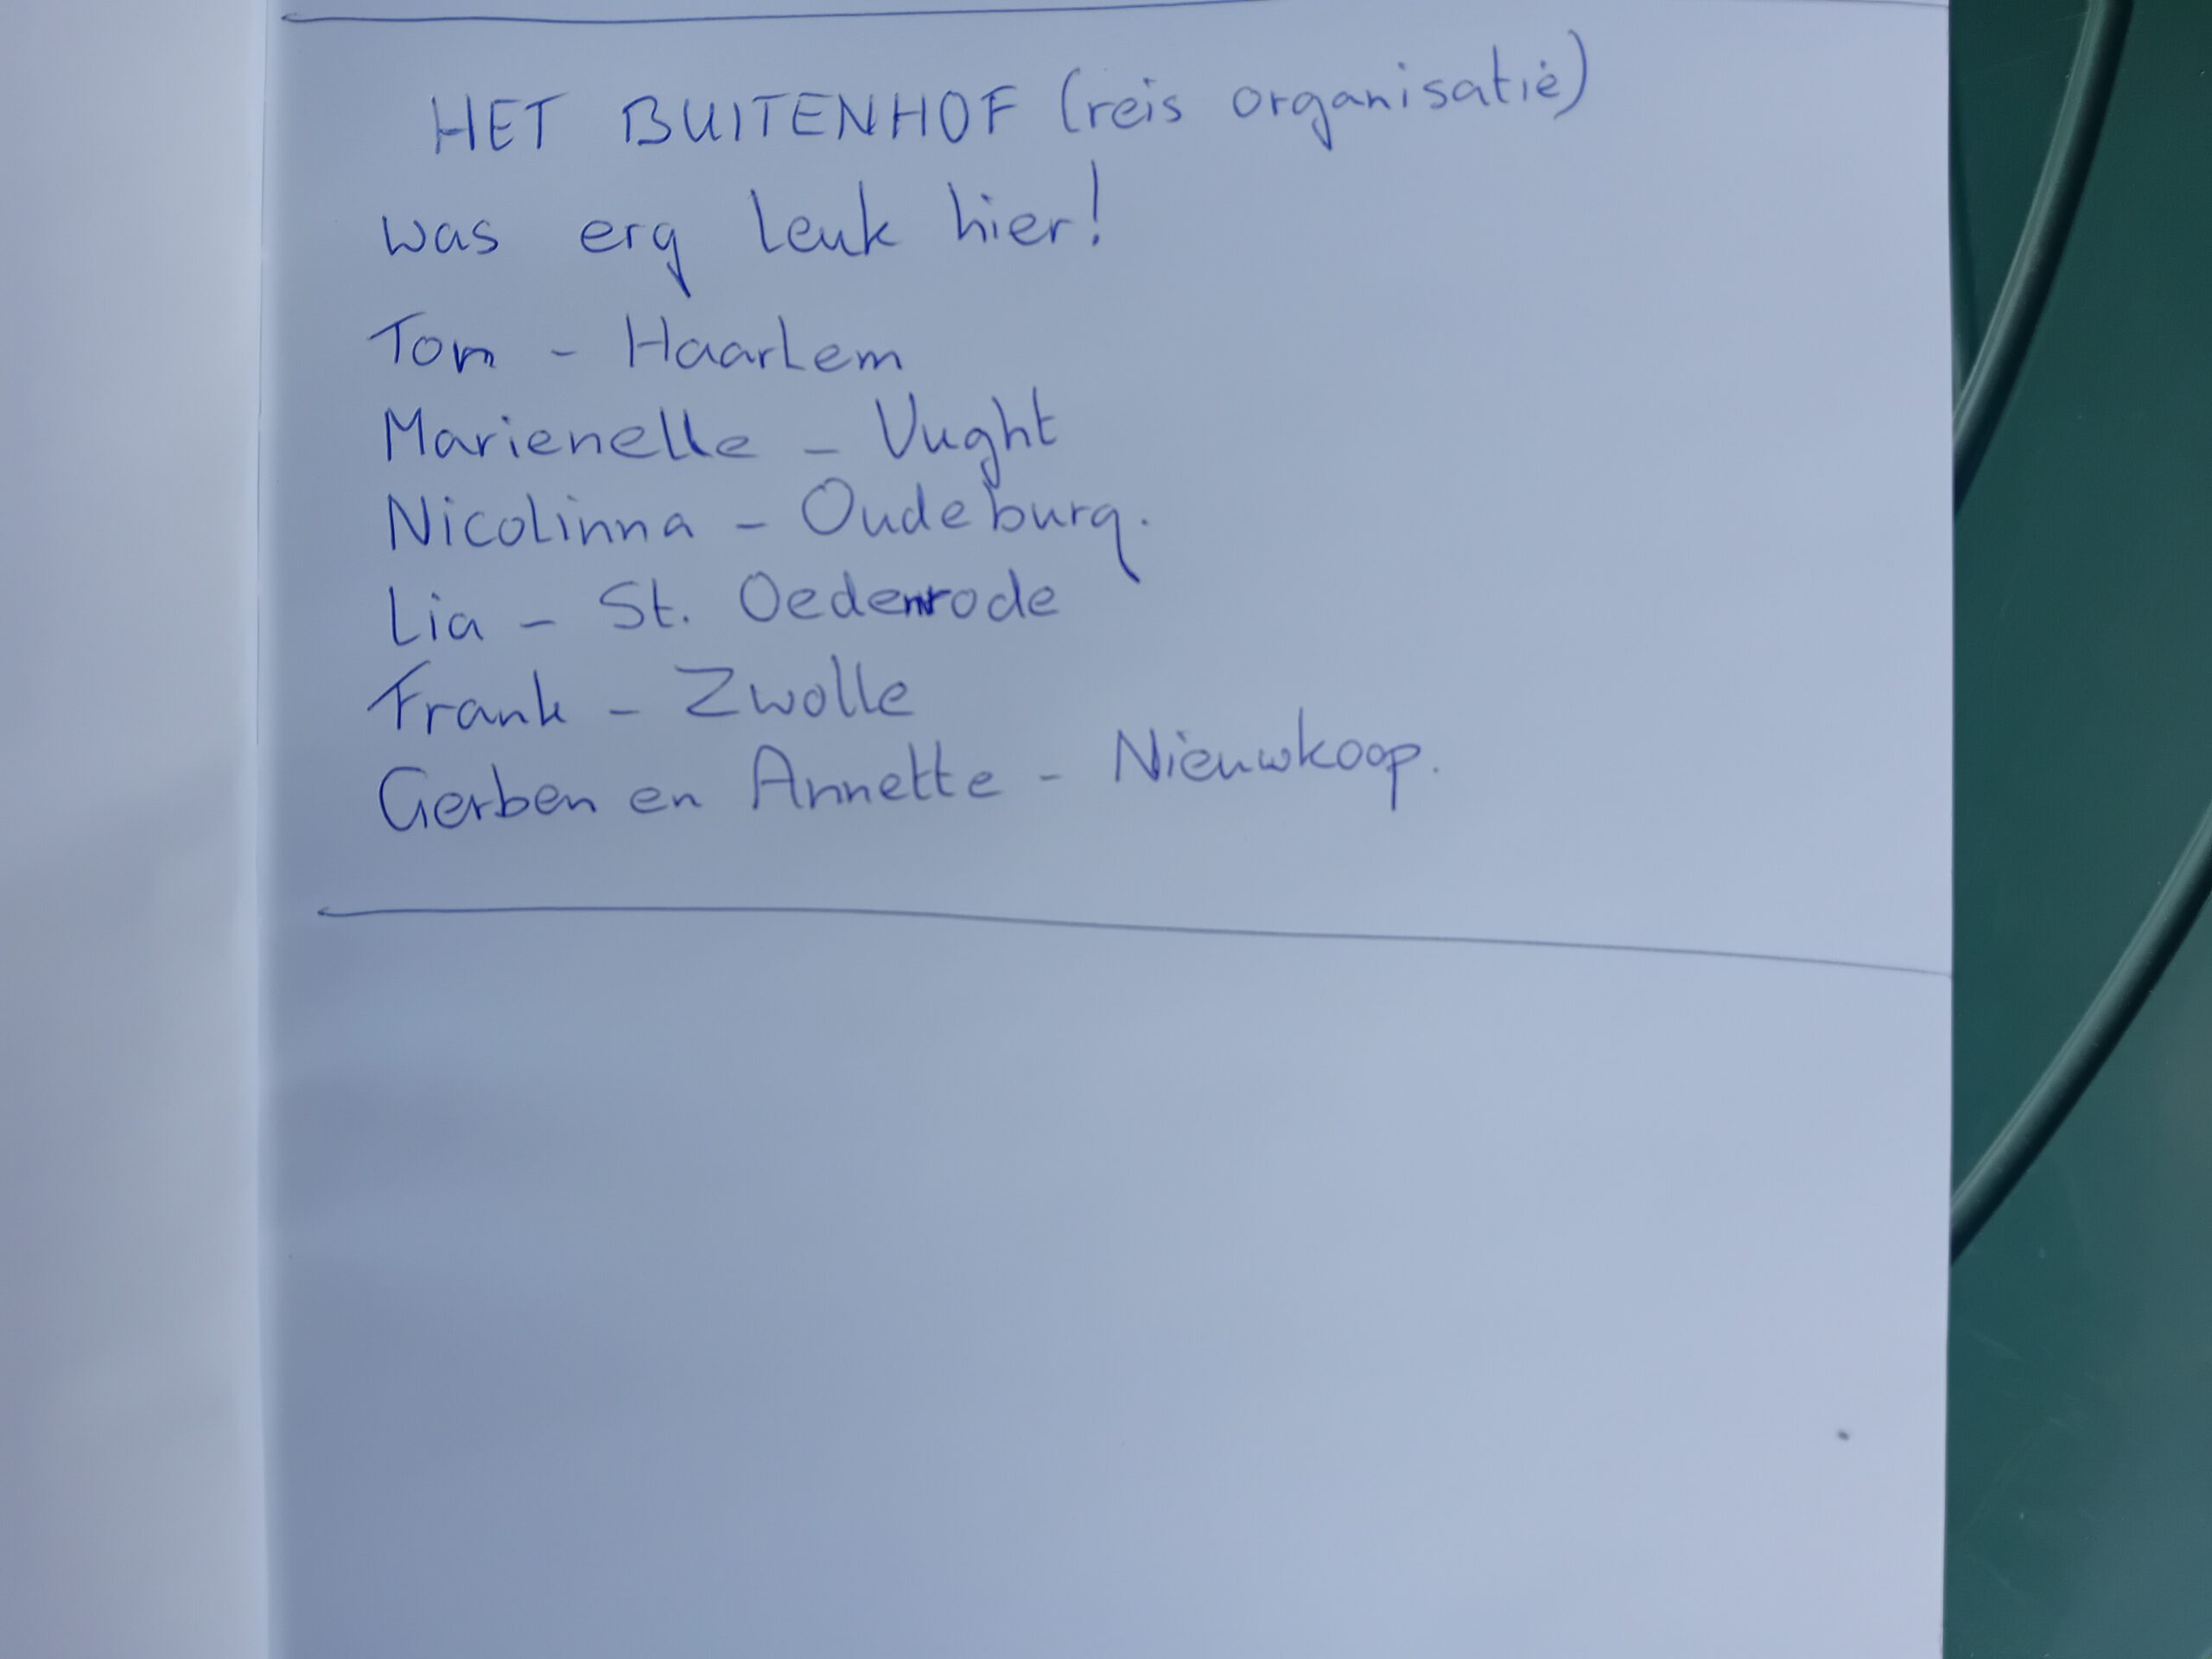 HET BUITENHOF (reis organisatie)
was erg leuk hier!
Tom - Haarlem
Marienelle - Vught
Nicolinna - Oudeburg.
Lia - St. Oedenrode
Frank - Zwolle
Gerben en Annette - Nieuwkoop.